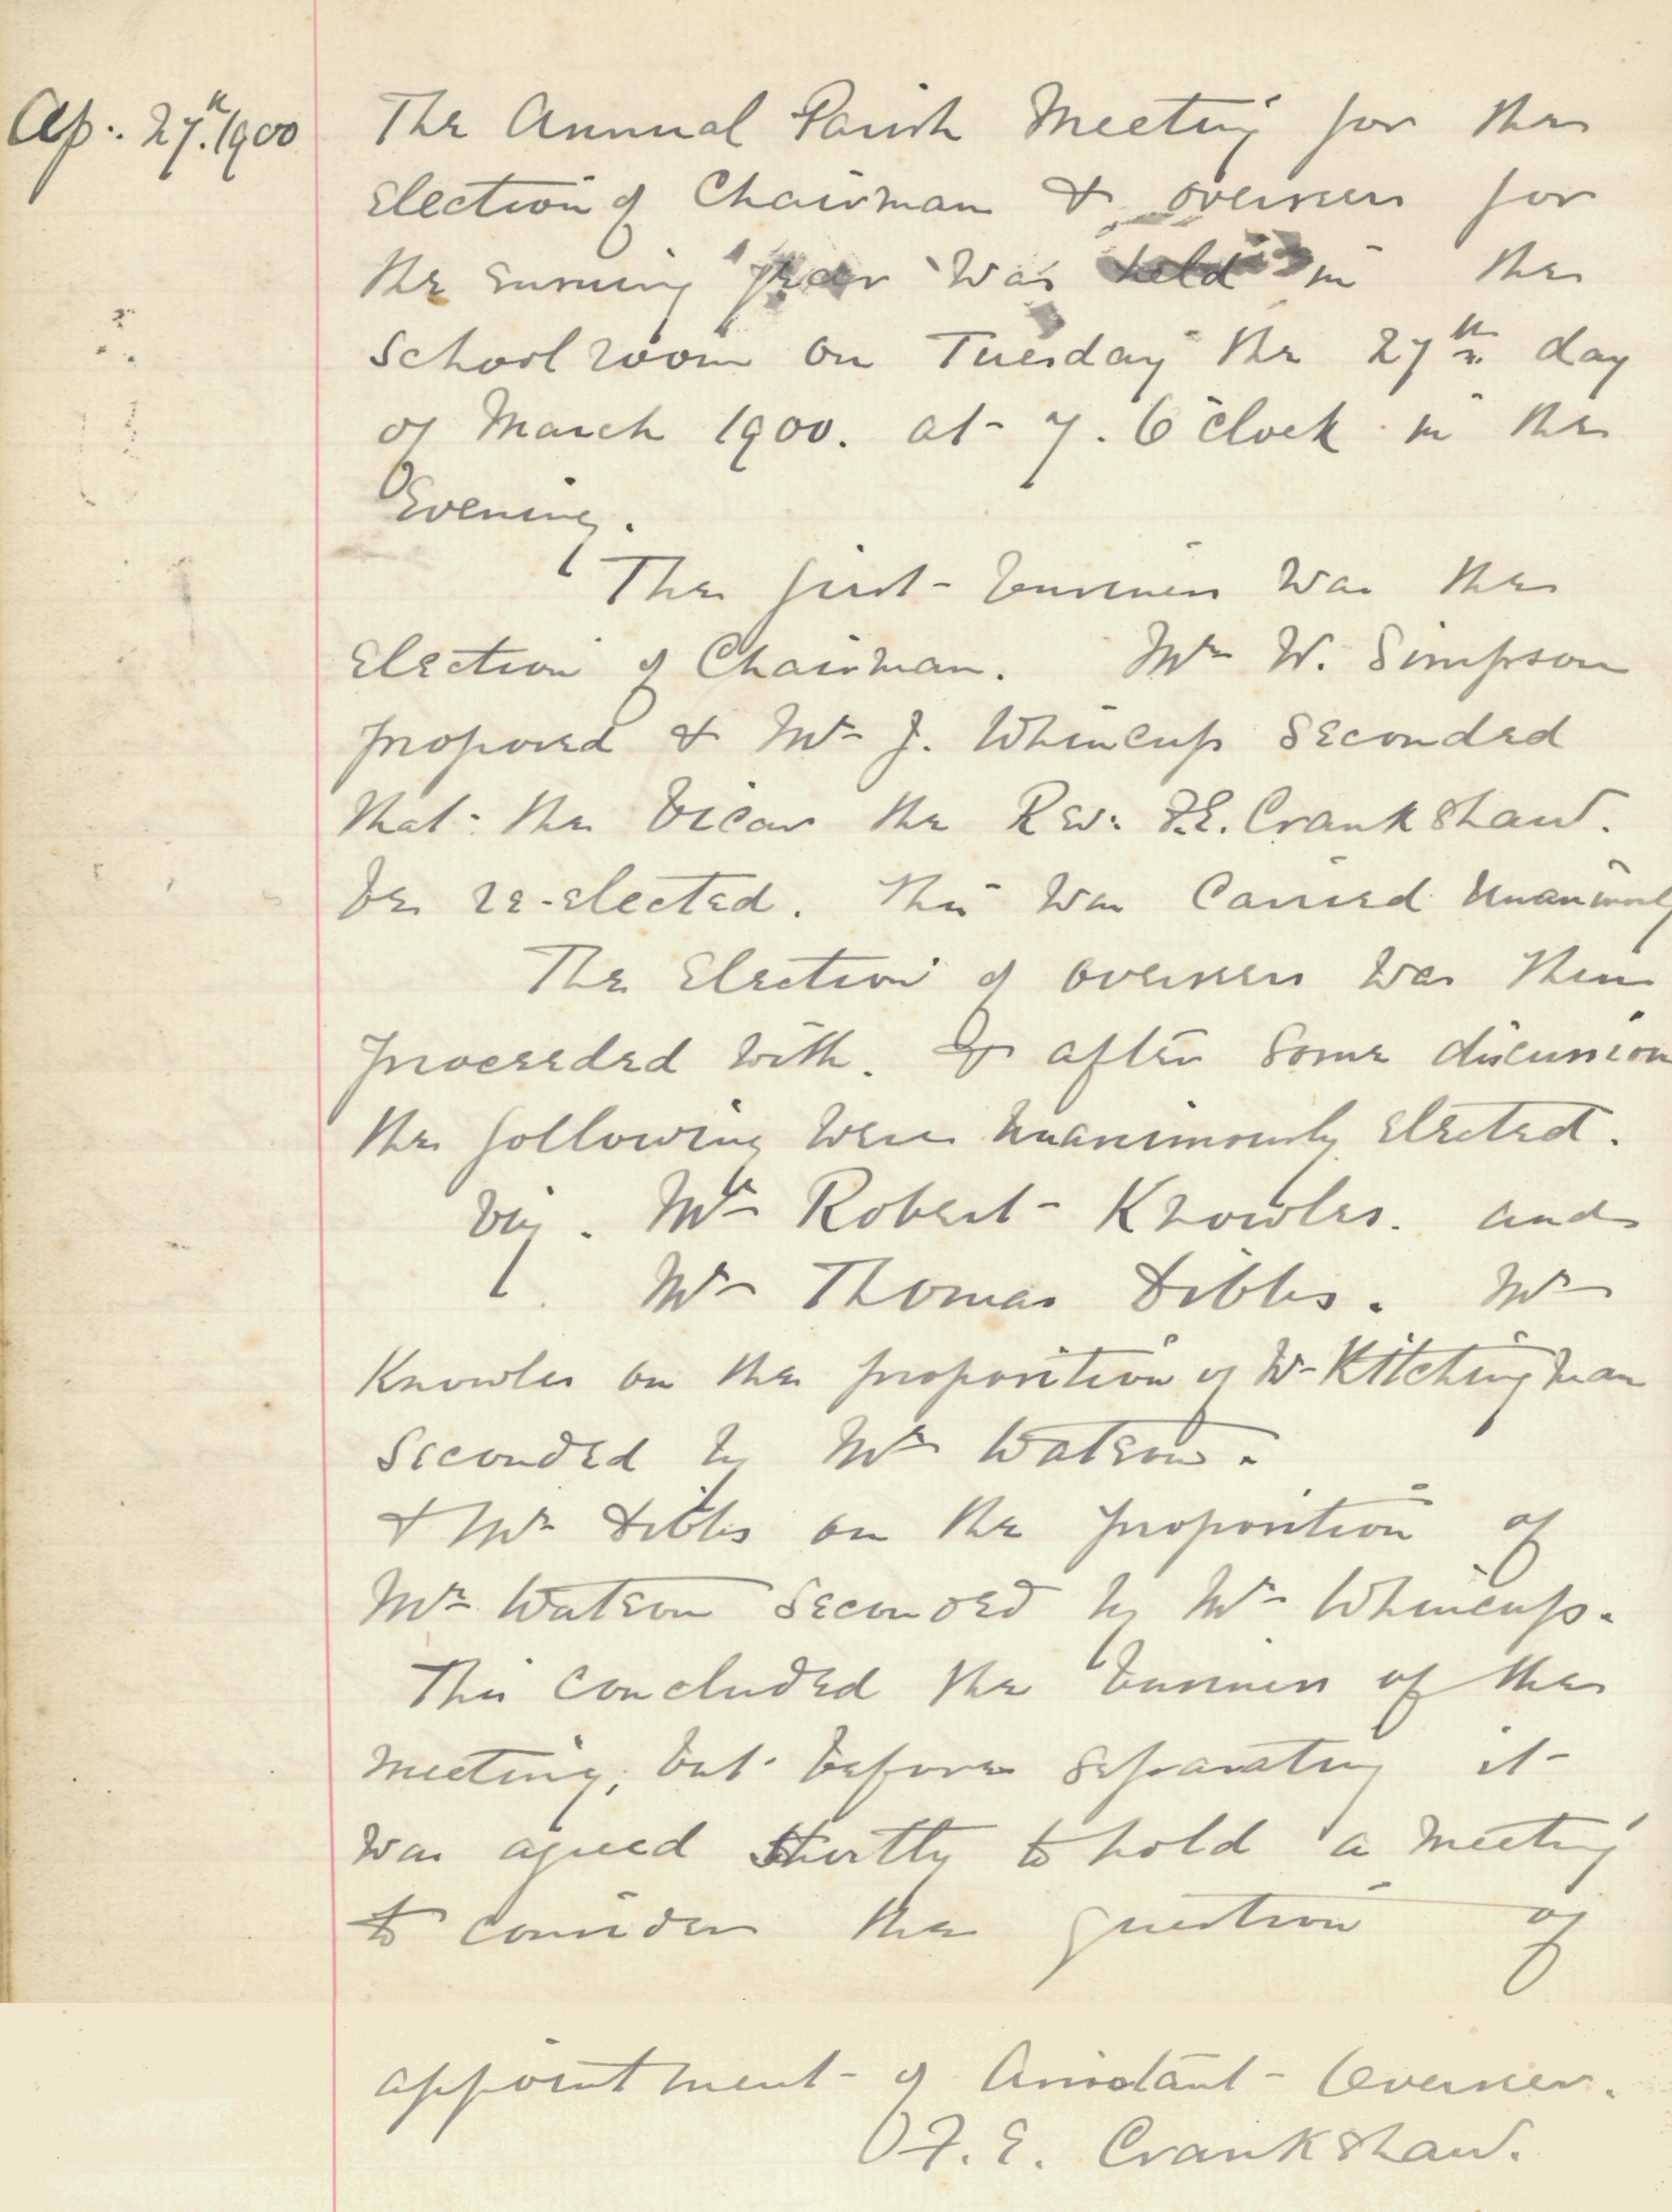 Ap: 27th. 1900
The Annual Parish Meeting for the
Election of Chairman & overseers for
the ensuing year was held in the
Schoolroom on Tuesday the 27th day
of March 1900. at 7. O'clock in the
Evening.
The first business was the
Election of Chairman. Mr W. Simpson
proposed & Mr J. Whincup seconded
that the Vicar the Rev: F.E. Crankshaw.
be re-elected. This was carried unanimously
The Election of overseers was then
proceeded with. & after some discussion
the following were unanimously elected.
viz. Mr Robert Knowles. and
Mr Thomas Dibbs. Mr
Knowles on the proposition of Mr Kitchingman
seconded by Mr Watson.
& Mr Dibbs on the proposition of
Mr Watson seconded by Mr Whincup.
This concluded the business of the
meeting, but before separating it
was agreed shortly to hold a meeting
to consider the question of
appointment of Assistant Overseer.
F. E. Crankshaw.